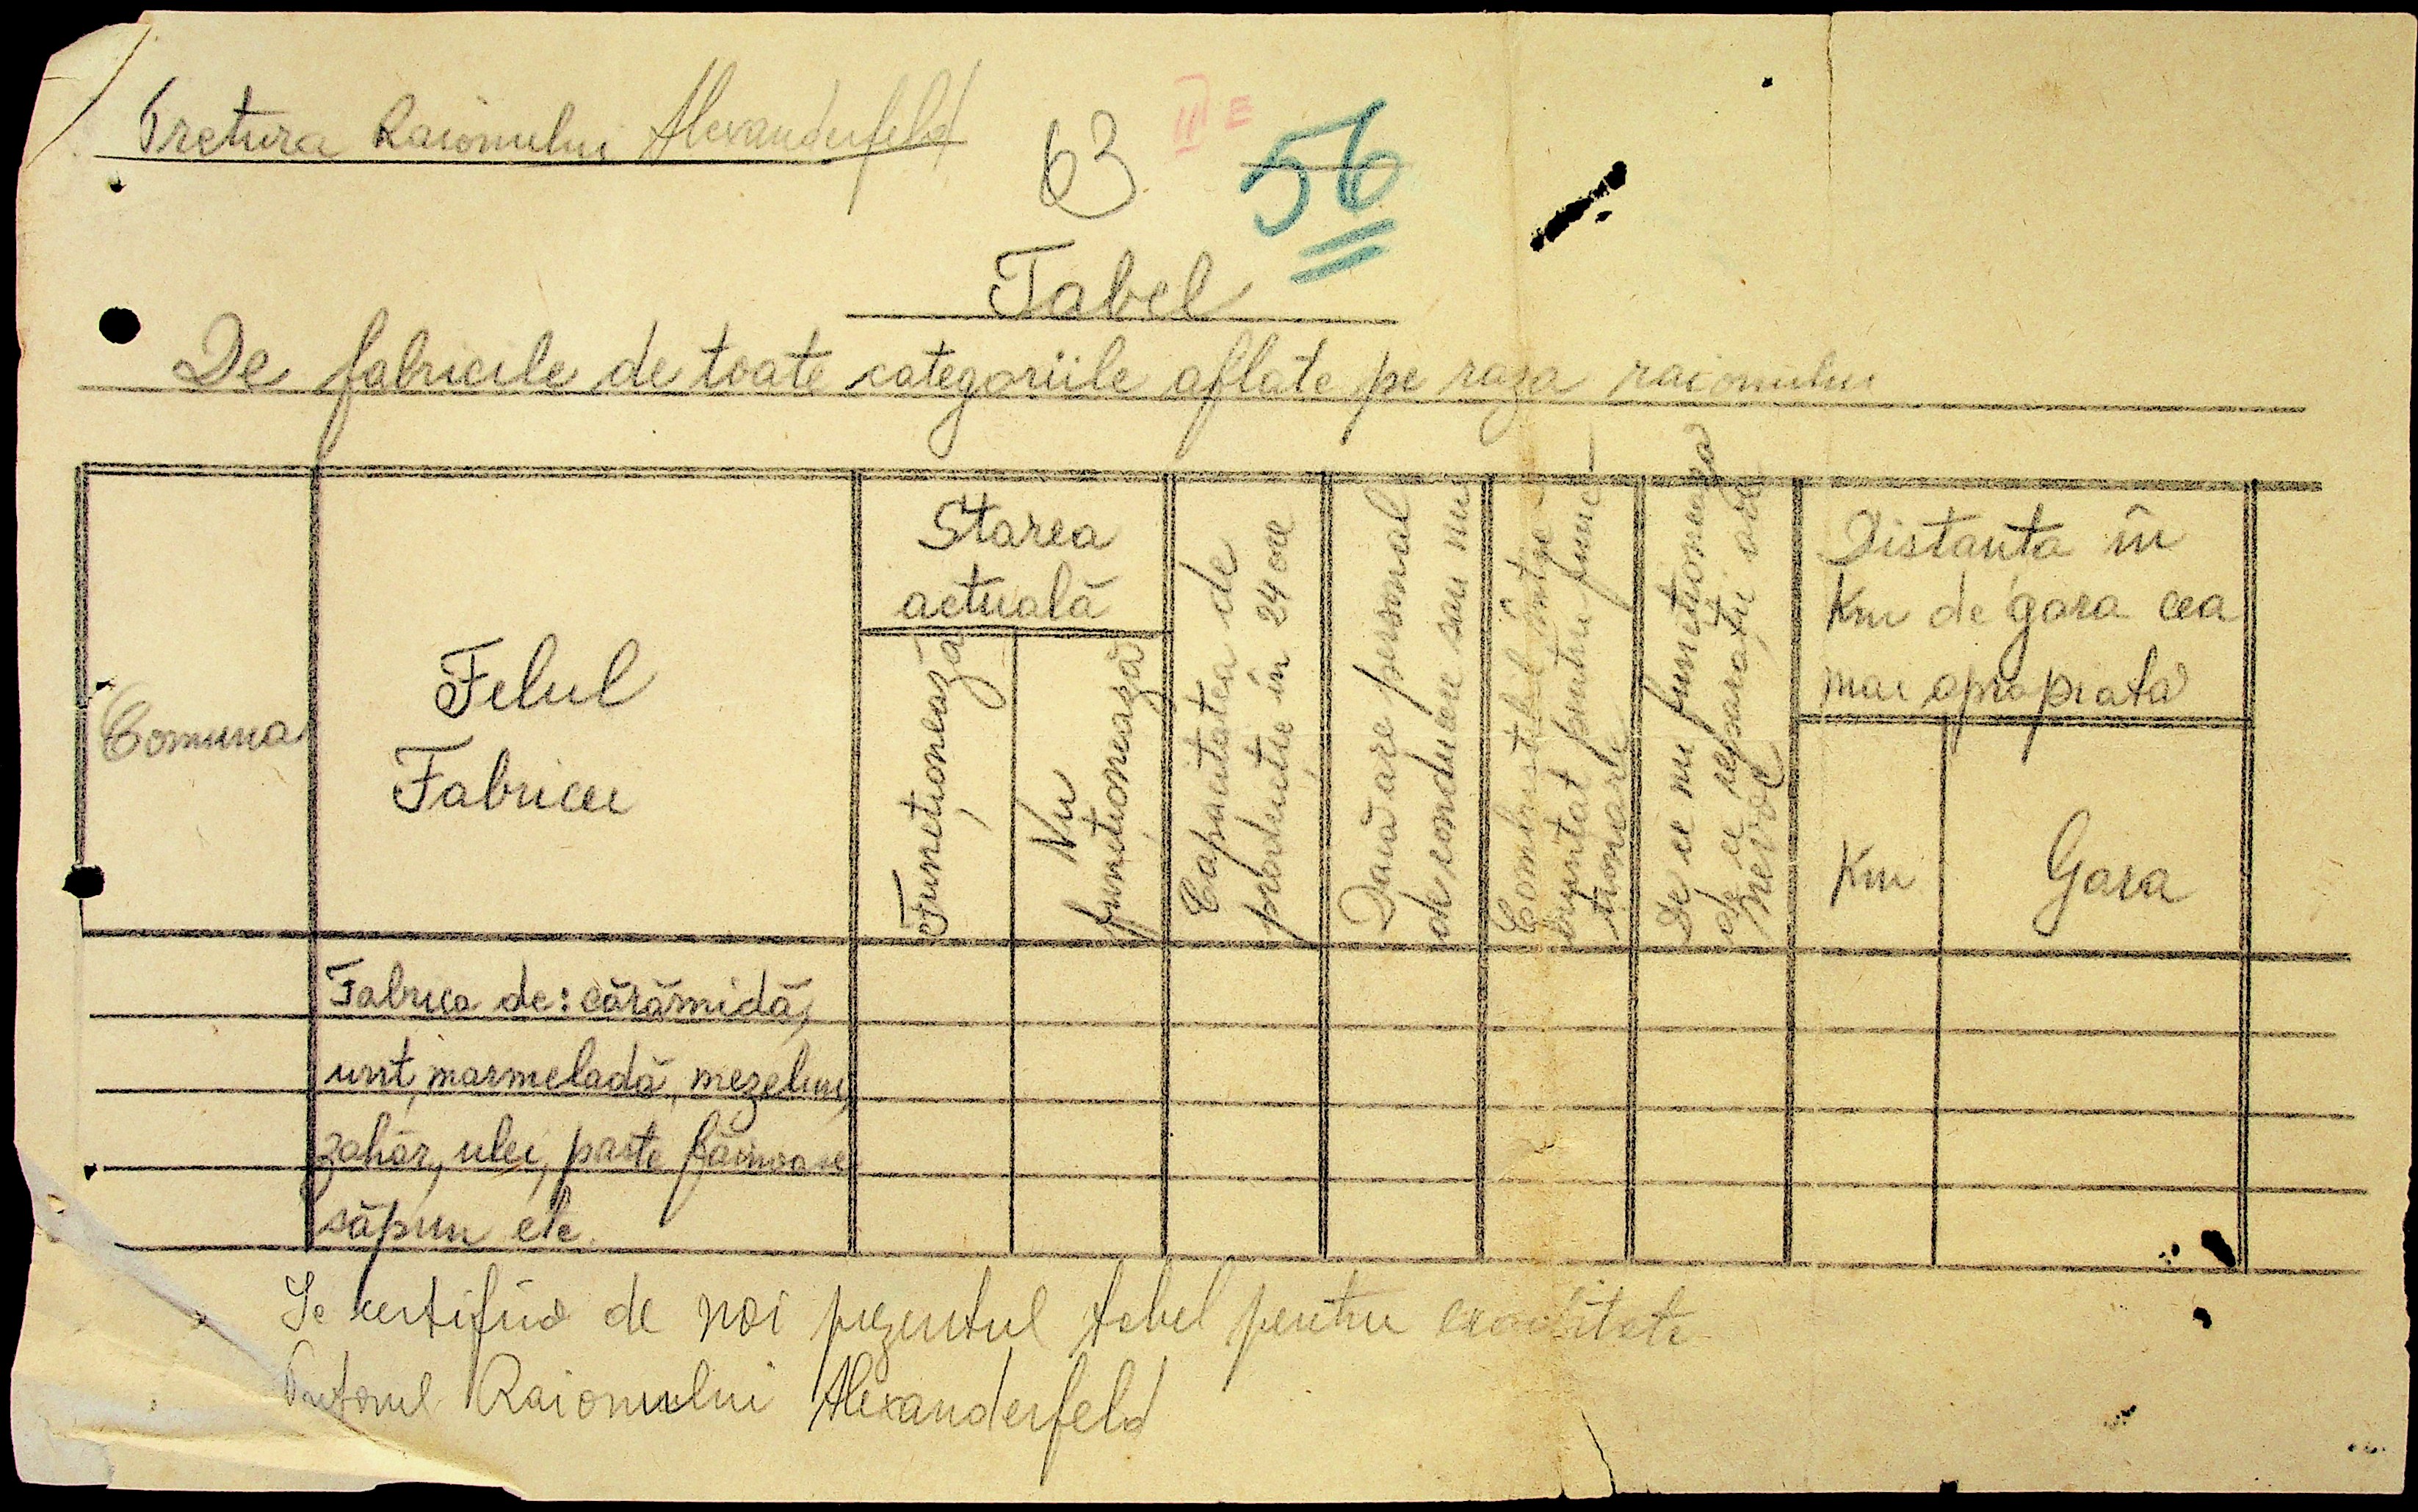 Pretura Raionului Alexanderfeld
63
56
Tabel
De fabricile de toate categoriile aflate pe raza raionului
Comuna
Felul
Fabricei
Starea
actuală
Funcționează
Nu
funcționează
Capacitatea de
producție în 24 ore
Dacă are personal
de conducere sau nu
Combustibil între-
buințat pentru func-
ționare
De ce nu funcționează
de ce reparații are
nevoe
Distanța în
Km de gara cea
mai apropiată
Km
Gara
Fabrica de: cărămidă,
unt, marmeladă, mezeluri,
zahăr, ulei, paste făinoase
săpun etc.
Se certifică de noi prezentul tabel pentru exactitate
Pretorul Raionului Alexanderfeld